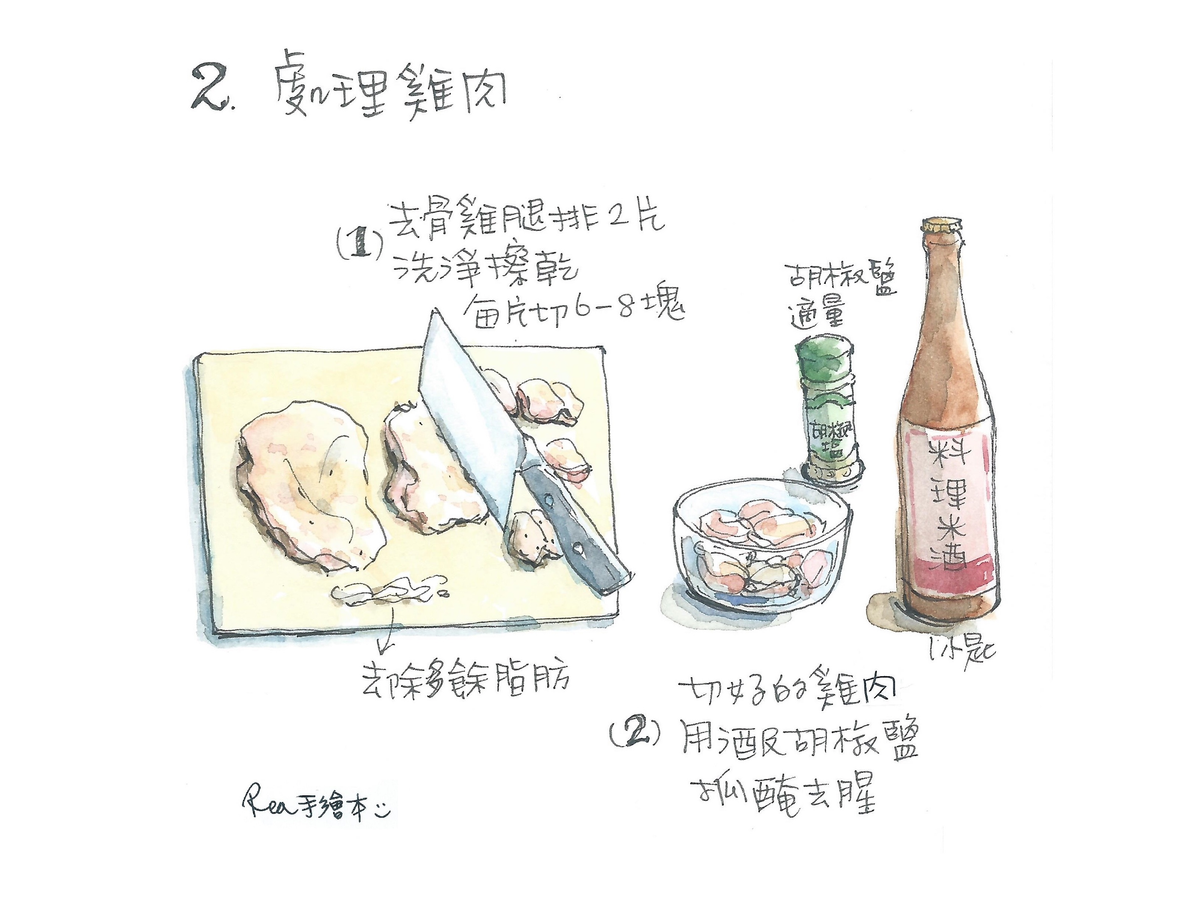 2. 處理雞肉
(1) 去骨雞腿排2片
洗淨擦乾
每片切6-8塊
胡椒鹽
適量
胡椒
塩
料理米酒
1小匙
去除多餘脂肪
切好的雞肉
(2) 用酒及胡椒鹽
抓醃去腥
Rea手繪本